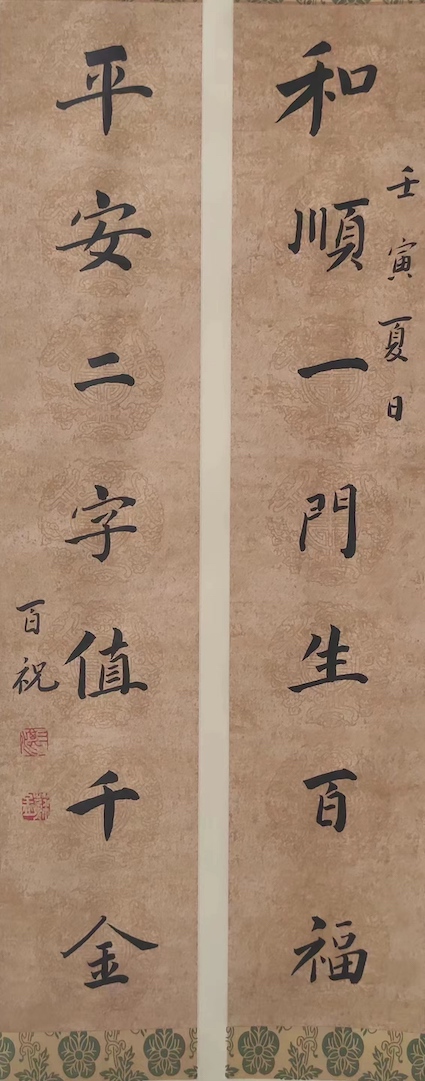 壬寅夏日
和順一門生百福
平安二字值千金
百祝